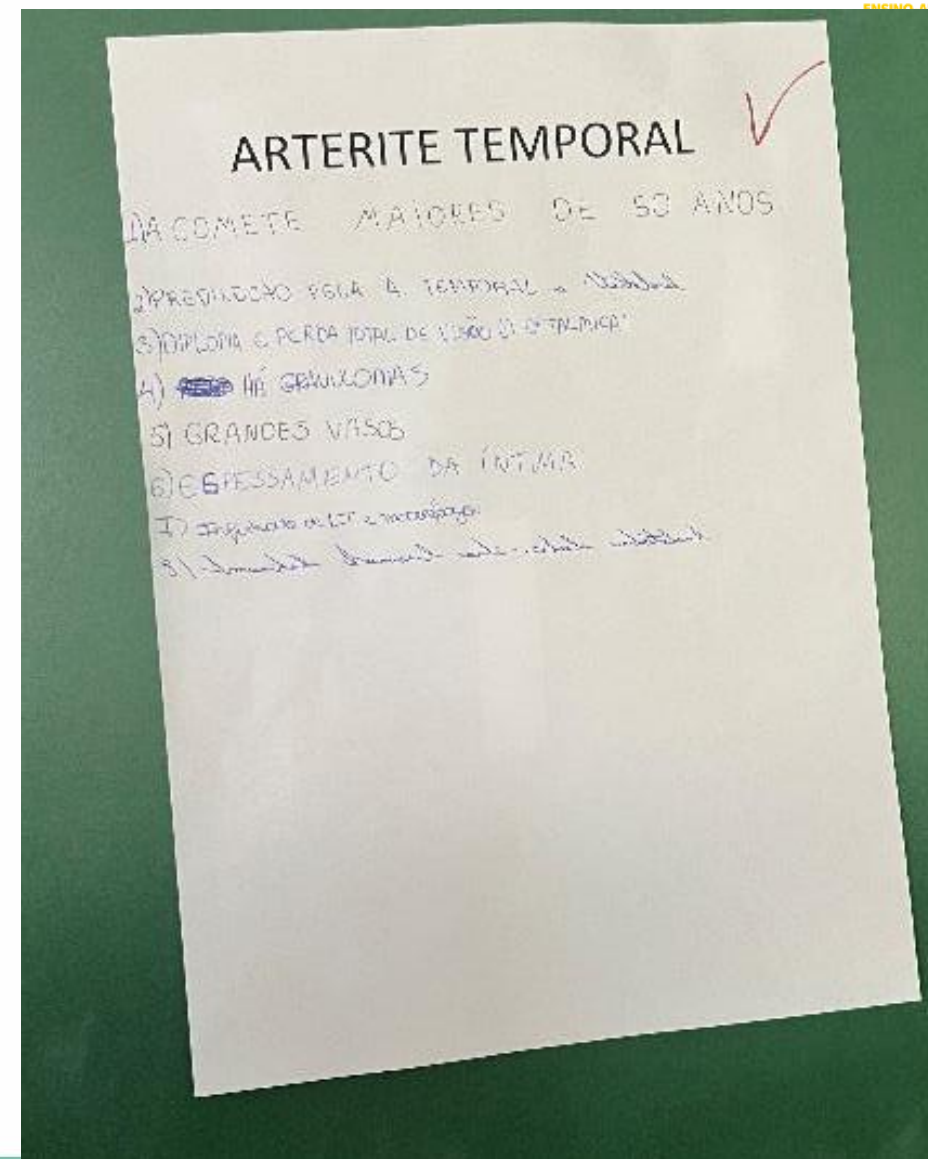 ENSINO A
ARTERITE TEMPORAL
1) ACOMETE MAIORES DE 50 ANOS
2) PREDILEÇÃO PELA A. TEMPORAL
3) DIPLOPIA E PERDA TOTAL DE VISÃO
4) HÁ GRANULOMAS
5) GRANDES VASOS
6) ESPESSAMENTO DA ÍNTIMA
7) Infiltrado de LT e macrófagos
8)